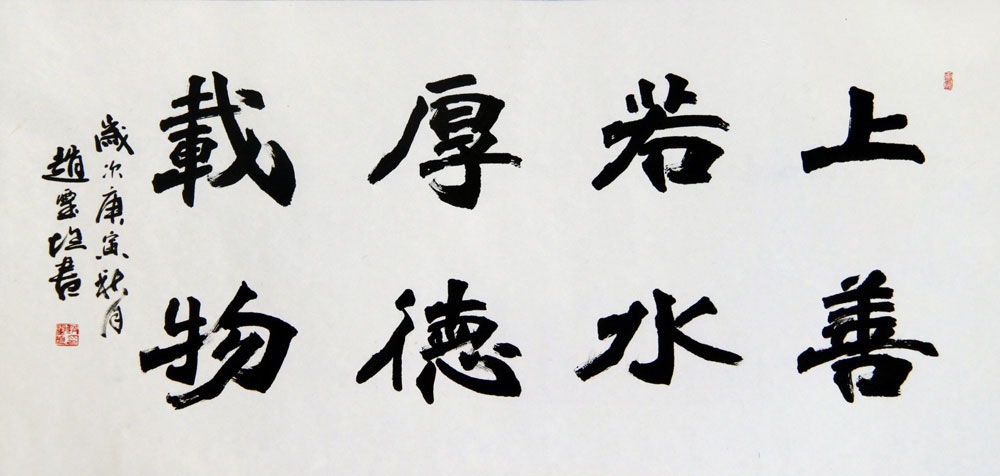 上善
若水
厚德
載物
歲次庚寅秋月
趙雲
書